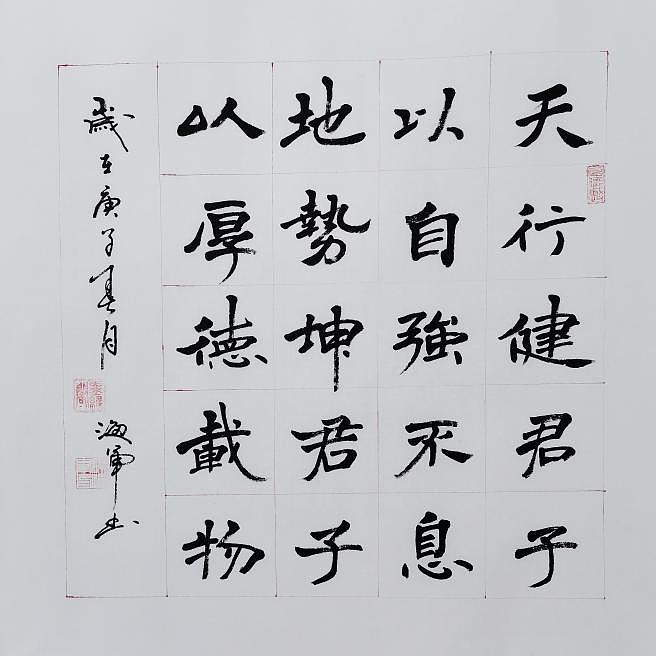 天行健君子
以自強不息
地勢坤君子
以厚德載物
歲在庚子春月
海軍书